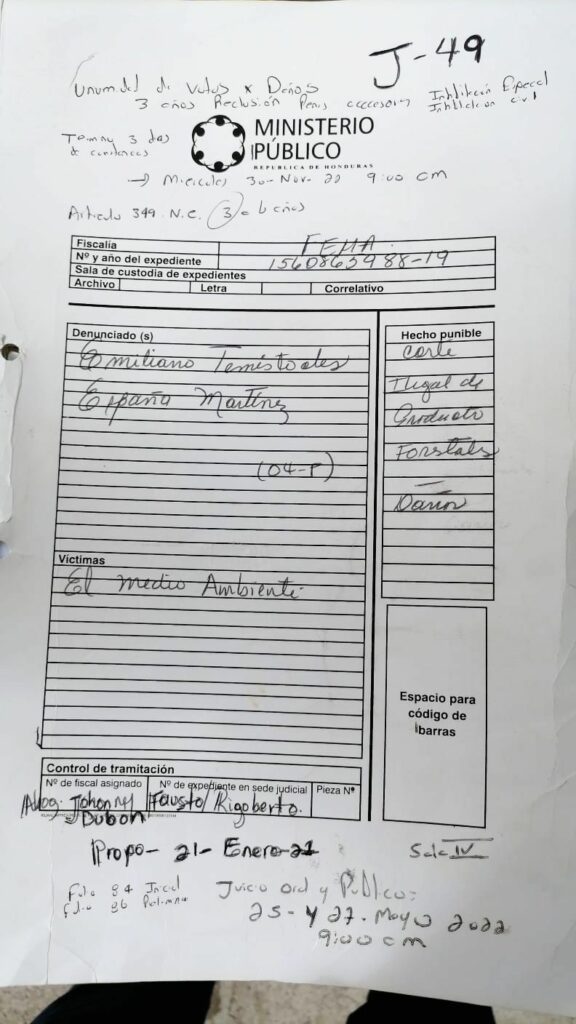 J-49
Unumdad de Votos x Daños
3 años Reclusión Penas accesorias Inhabilitación Especial
Inhabilitación civil
3 dias
MINISTERIO
PÚBLICO
REPUBLICA DE HONDURAS
→ Miercoles 30-Nov-22 9:00 am
Articulo 349 N.C. 3 a 6 años
Fiscalía FEMA.
Nº y año del expediente 1560863988-19
Sala de custodia de expedientes
Archivo Letra Correlativo
Denunciado (s)
Emiliano Temistocles
España Martínez
(04-P)
Hecho punible
Corte
Ilegal de
Producto
Forstales
Daños
Víctimas
El Medio Ambiente.
Espacio para
código de
barras
Control de tramitación
Nº de fiscal asignado Nº de expediente en sede judicial Pieza Nº
Abog. Johonny Fausto/Rigoberto.
Dubon
Propo- 21- Enero-21
Sala IV
Folio 84 Inicial
Folio 86
Juicio Oral y Publico:
25- y 27. Mayo 2022
9:00 am